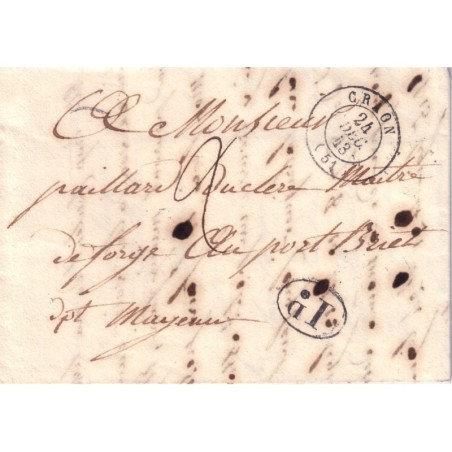 A Monsieur
paillard Ducléré Maitre
de forge Au port Briét
dpt Mayenne
2
CRAON
24
DEC
43
(51)
I.D